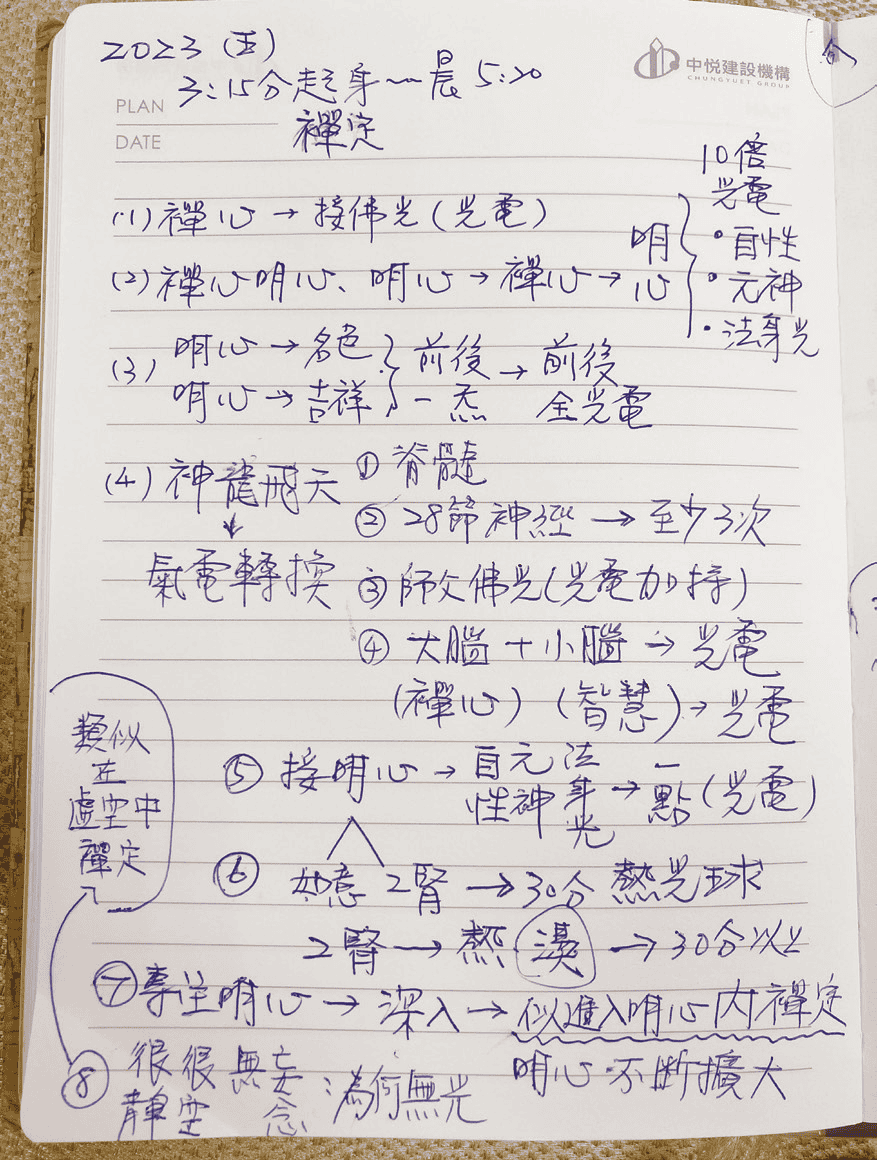 2023 (五)
3:15分起身~晨 5:20
禪定
中悦建設機構
CHUNGYUET GROUP
PLAN
DATE
(1) 禪心→接佛光(光電)
(2) 禪心明心、明心→禪心→明心
10倍
光電
•自性
•元神
•法身光
(3) 明心→名色 } 前後→前後
明心→吉祥 } 一炁 全光電
(4) 神龍飛天
↓
氣電轉換
① 脊髓
② 28節神經→至少3次
③ 師父佛光(光電加持)
④ 大腦+小腦→光電
(禪心)(智慧)→光電
⑤ 接明心→自性元神法身光→一點(光電)
⑥ 如意2腎→30分熱光球
2腎→熱燙→30分以上
⑦ 專注明心→深入→似進入明心內禪定
明心不斷擴大
⑧ 很靜很空無妄念:為何無光
類似
在
虛空中
禪定